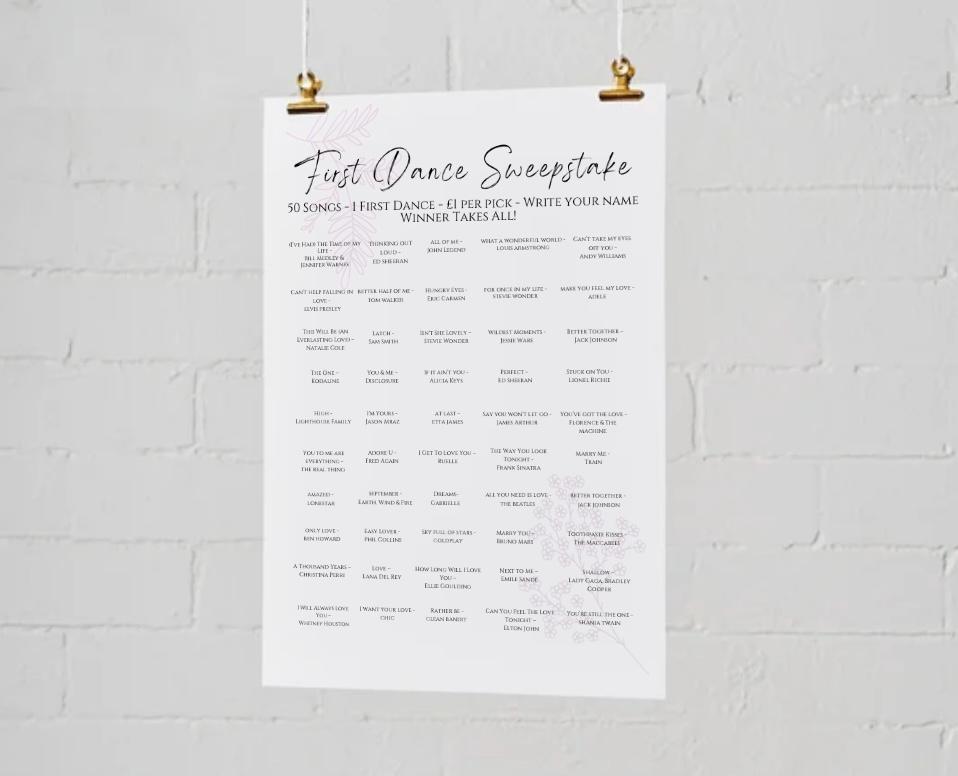 First Dance Sweepstake
50 Songs - 1 First Dance - £1 per pick - Write your name
Winner Takes All!
I've Had( the Time of My
Life -
Bill Medley &
Jennifer Warnes
Thinking Out
Loud -
Ed Sheeran
All of Me -
John Legend
What a Wonderful World -
Louis Armstrong
Can't Take My Eyes
Off You -
Andy Williams
Can't Help Falling in
Love -
Elvis Presley
Better Half of Me -
Tom Walker
Hungry Eyes -
Eric Carmen
For Once in My Life -
Stevie Wonder
Make You Feel My Love -
Adele
This Will Be (An
Everlasting Love) -
Natalie Cole
Latch -
Sam Smith
Isn't She Lovely -
Stevie Wonder
Wildest Moments -
Jessie Ware
Better Together -
Jack Johnson
The One -
Kodaline
You & Me -
Disclosure
If It Ain't You -
Alicia Keys
Perfect -
Ed Sheeran
Stuck on You -
Lionel Richie
High -
Lighthouse Family
I'm Yours -
Jason Mraz
At Last -
Etta James
Say You Won't Let Go -
James Arthur
You've Got the Love -
Florence & The
Machine
You to Me Are
Everything -
The Real Thing
Adore U -
Fred Again
I Get to Love You -
Ruelle
The Way You Look
Tonight -
Frank Sinatra
Marry Me -
Train
Amazed -
Lonestar
September -
Earth, Wind & Fire
Dreams-
Gabrielle
All You Need Is Love -
The Beatles
Better Together -
Jack Johnson
Only Love -
Ben Howard
Easy Lover -
Phil Collins
Sky Full of Stars -
Coldplay
Marry You-
Bruno Mars
Toothpaste Kisses -
The Maccabees
A Thousand Years -
Christina Perri
Love -
Lana Del Rey
How Long Will I Love
You -
Ellie Goulding
Next to Me -
Emile Sandé
Shallow -
Lady Gaga, Bradley
Cooper
I Will Always Love
You -
Whitney Houston
I Want Your Love -
Chic
Rather Be -
Clean Bandit
Can You Feel the Love
Tonight -
Elton John
You're Still the One -
Shania Twain